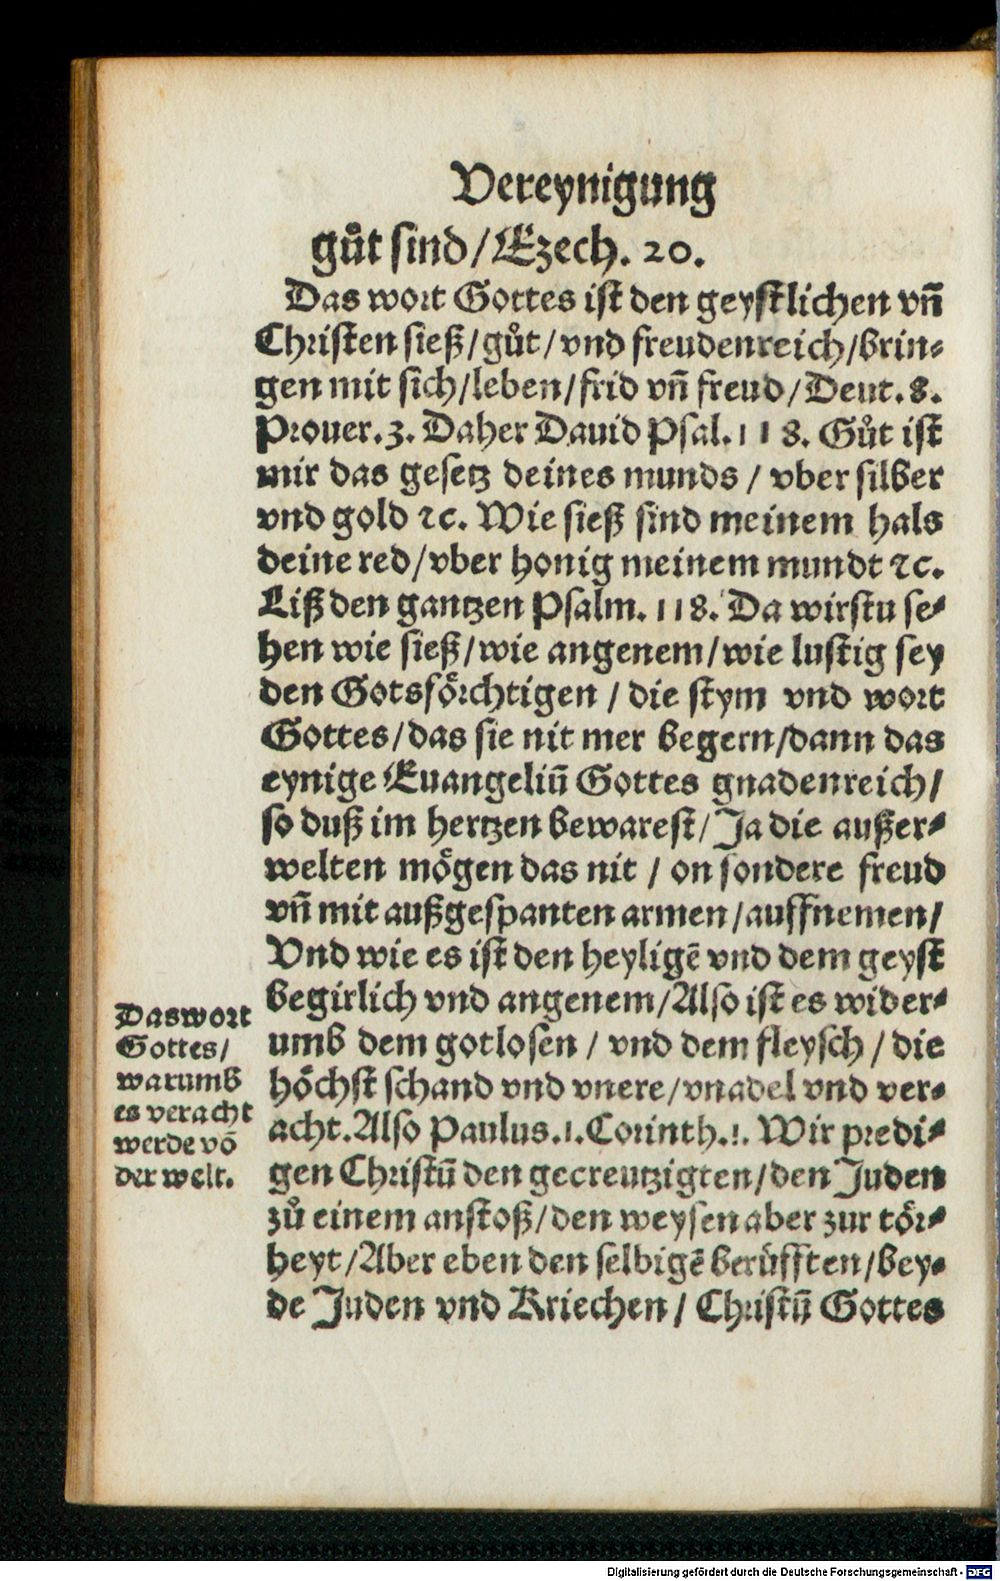 Vereynigung
gůt sind/ Ezech. 20.
Das wort Gottes ist den geystlichen vñ
Christen sieß/ gůt/ vnd freudenreich/ brin⸗
gen mit sich/ leben/ frid vñ freud/ Deut. 8.
Prouer. 3. Daher Dauid Psal. 118. Gůt ist
mir das gesetz deines munds / vber silber
vnd gold ꝛc. Wie sieß sind meinem hals
deine red/ vber honig meinem mundt ꝛc.
Liß den gantzen Psalm. 118. Da wirstu se⸗
hen wie sieß/ wie angenem/ wie lustig sey
den Gotsförchtigen / die stym vnd wort
Gottes/ das sie nit mer begern/ dann das
eynige Euangeliū Gottes gnadenreich/
so duß im hertzen bewarest/ Ja die außer⸗
welten mögen das nit / on sondere freud
vñ mit außgespanten armen/ auffnemen/
Vnd wie es ist den heyligē vnd dem geyst
begirlich vnd angenem/ Also ist es wider⸗
umb dem gotlosen / vnd dem fleysch / die
höchst schand vnd vnere/ vnadel vnd ver⸗
acht. Also Paulus. 1. Corinth. 1. Wir predi⸗
gen Christū den gecreutzigten/ den Juden
zů einem anstoß/ den weysen aber zur tör⸗
heyt/ Aber eben den selbigē berüfften/ bey⸗
de Juden vnd Kriechen/ Christū Gottes
Das wort
Gottes/
warumb
es veracht
werde vō
der welt.
Digitalisierung gefördert durch die Deutsche Forschungsgemeinschaft - DFG